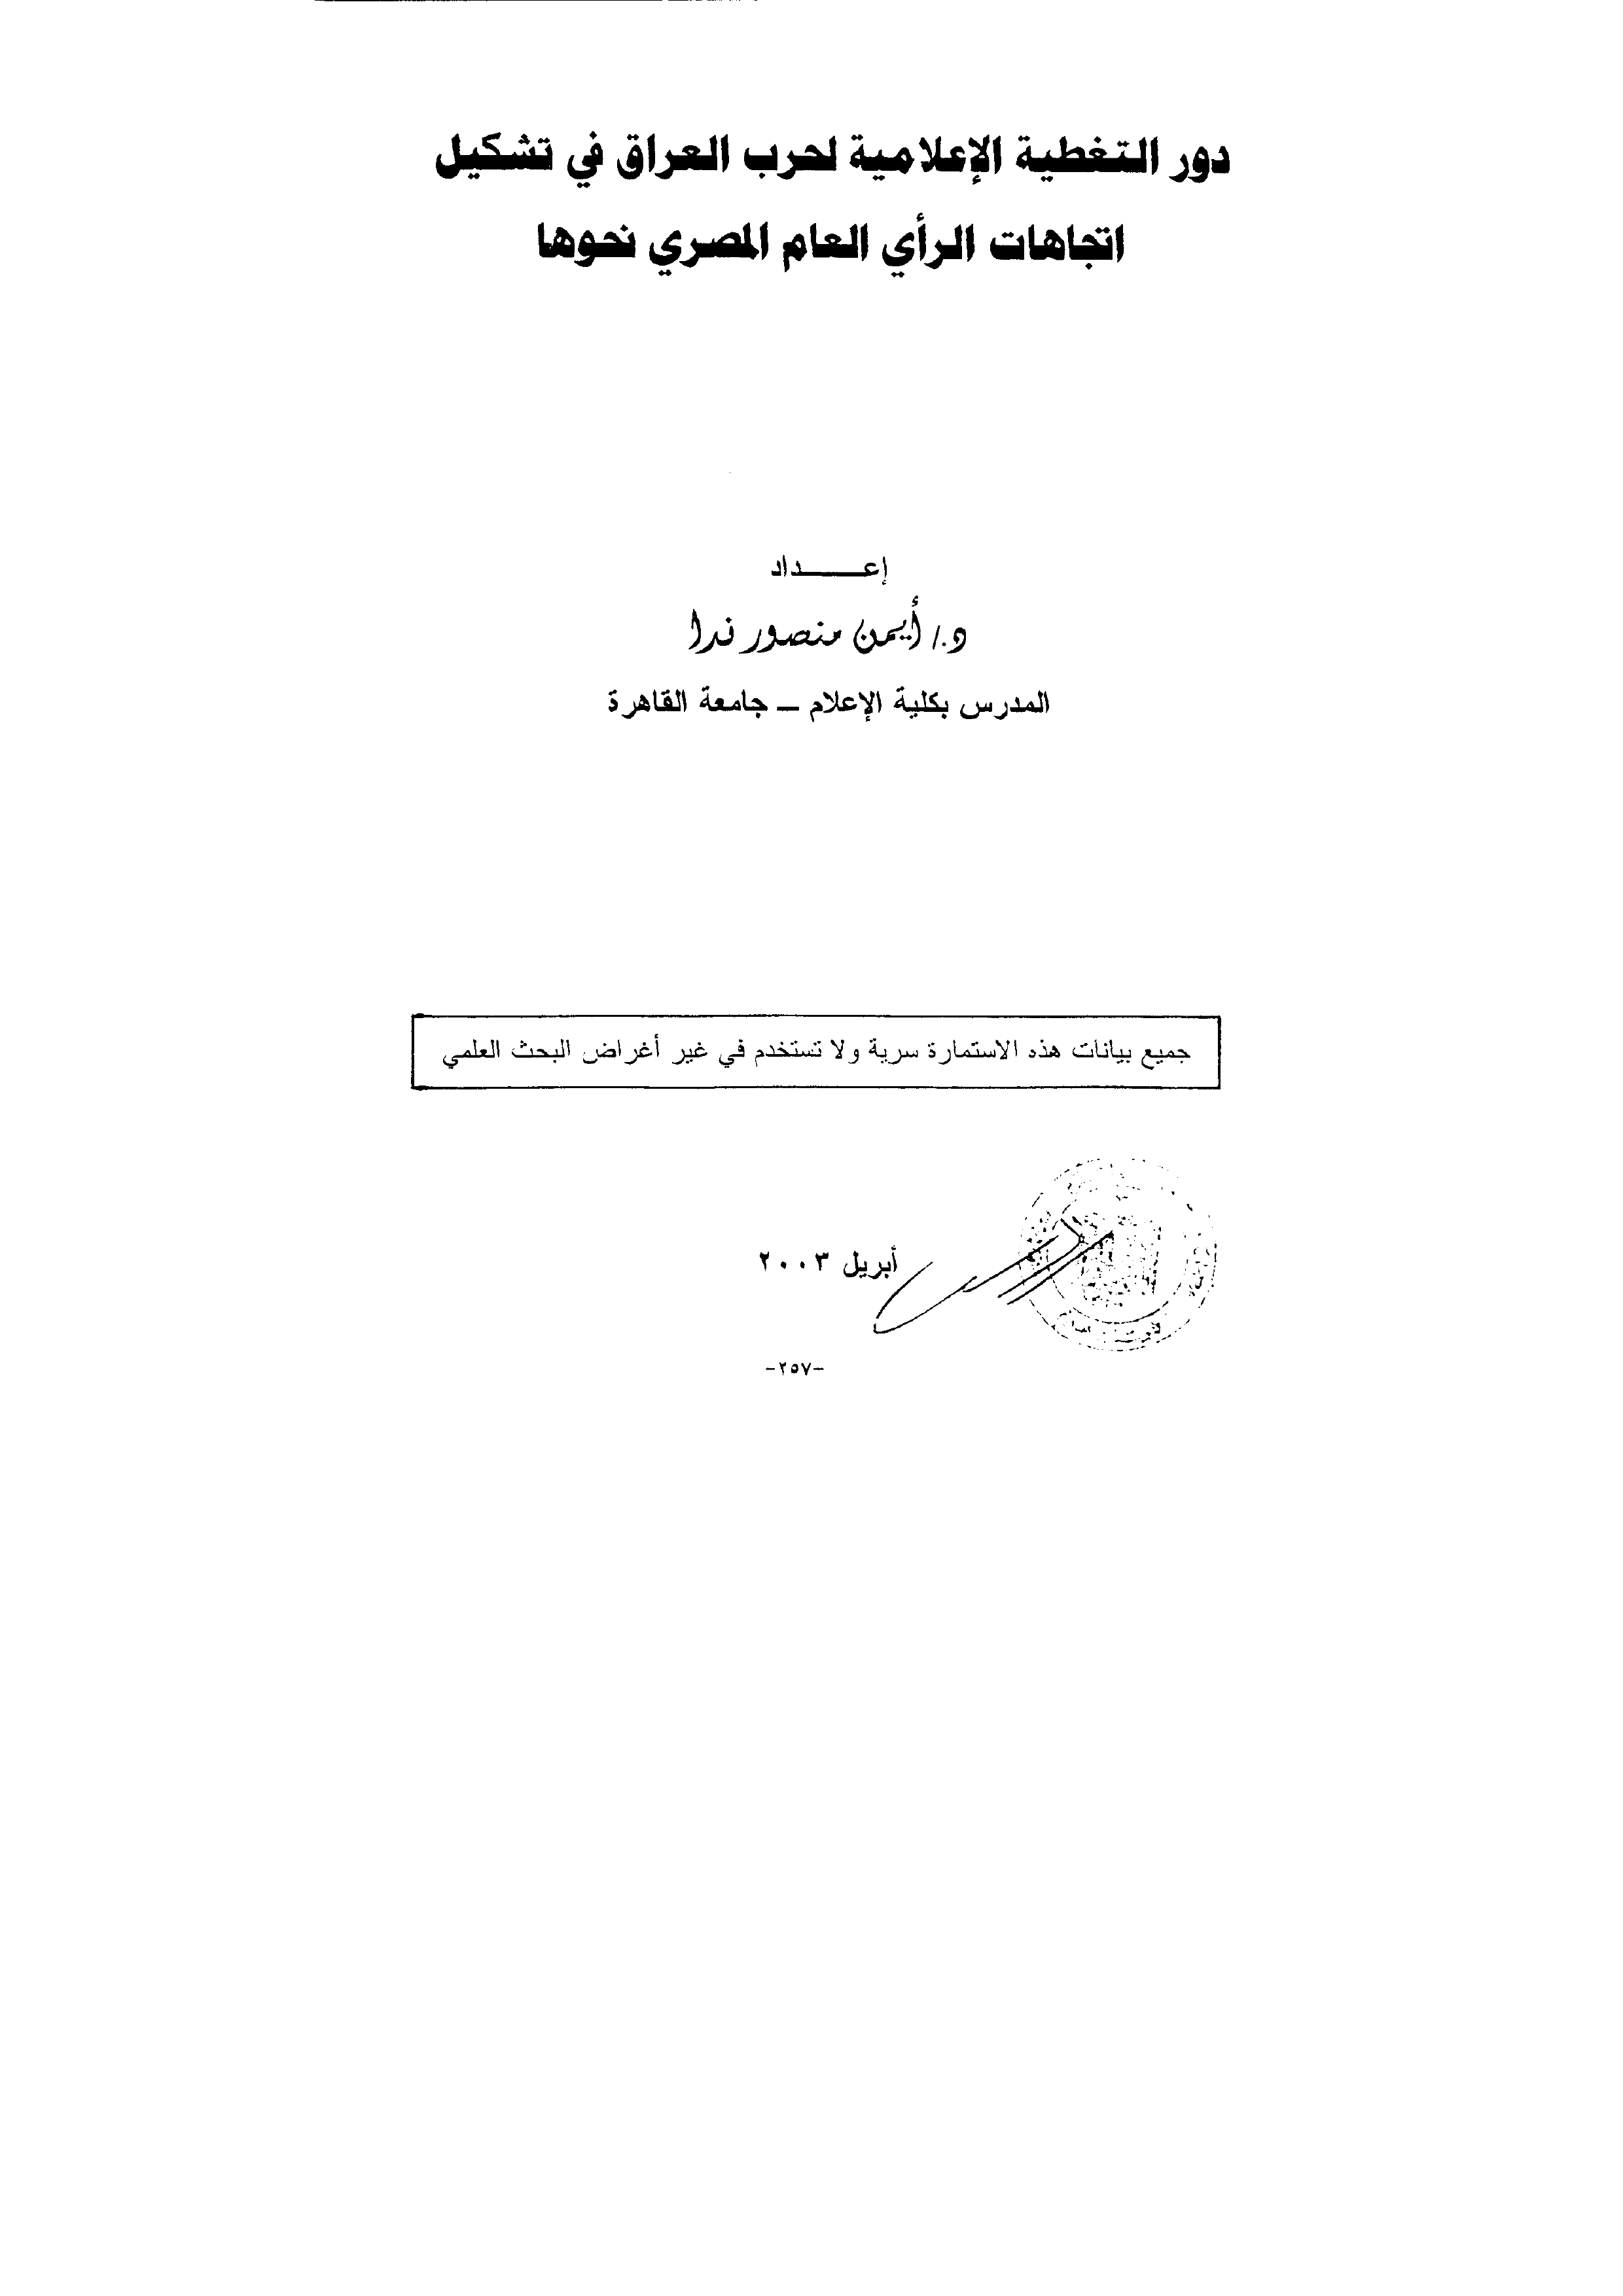 دور التغطية الإعلامية لحرب العراق في تشكيل
اتجاهات الرأي العام المصري نحوها
إعـــــداد
د./ أيمن منصور ندا
المدرس بكلية الإعلام – جامعة القاهرة
جميع بيانات هذه الاستمارة سرية ولا تستخدم في غير أغراض البحث العلمي
أبريل ٢٠٠٣
-٢٥٧-